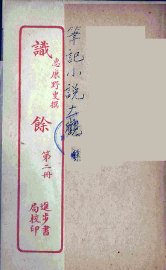 筆記小說大觀
惠原野史撰
識餘
第二冊
進步書
局校印